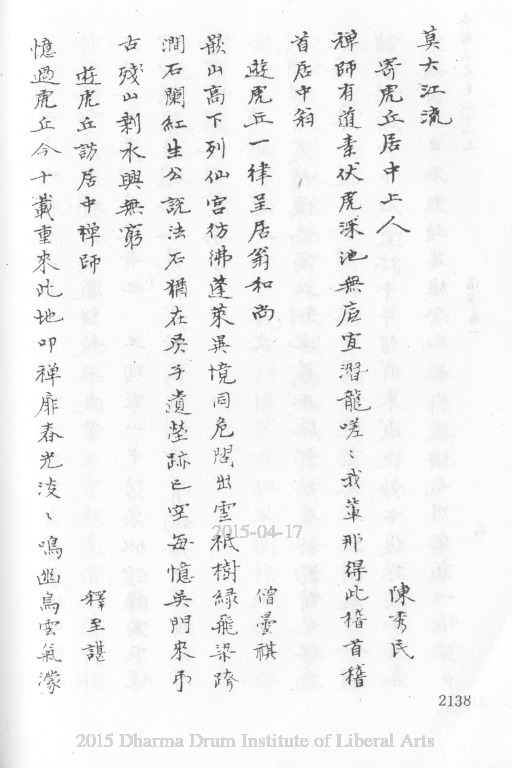 莫大江流
寄虎丘居中上人
陳秀民
禪師有道素伏虎深池無底宜潛龍嗟我輩那得此稽首稽
首居中翁
遊虎丘一律呈居翁和尚
僧曇祺
嚴山高下列仙宮彷彿蓬萊異境同危閣出雲祇樹綠飛梁跨
澗石闌紅生公說法石猶在吳子遺塋跡已空每憶吳門來弔
古殘山剩水興無窮
遊虎丘訪居中禪師
釋至諶
憶過虎丘今十載重來此地叩禪扉春光淡〻鳴幽鳥雲氣濛
2015-04-17
2138
2015 Dharma Drum Institute of Liberal Arts